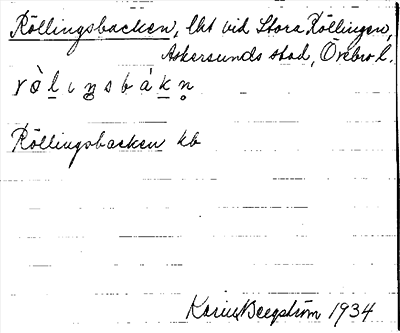 Röllingsbacken, lht vid Stora Röllingen,
Askersunds stad, Örebro l.
rö̀lıŋsbákn̥
Röllingsbacken kb
Karin Bergström 1934